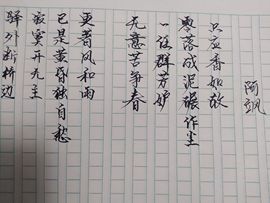 驿外断桥边
寂寞开无主
已是黄昏独自愁
更着风和雨
无意苦争春
一任群芳妒
零落成泥碾作尘
只应香如故
阿飒